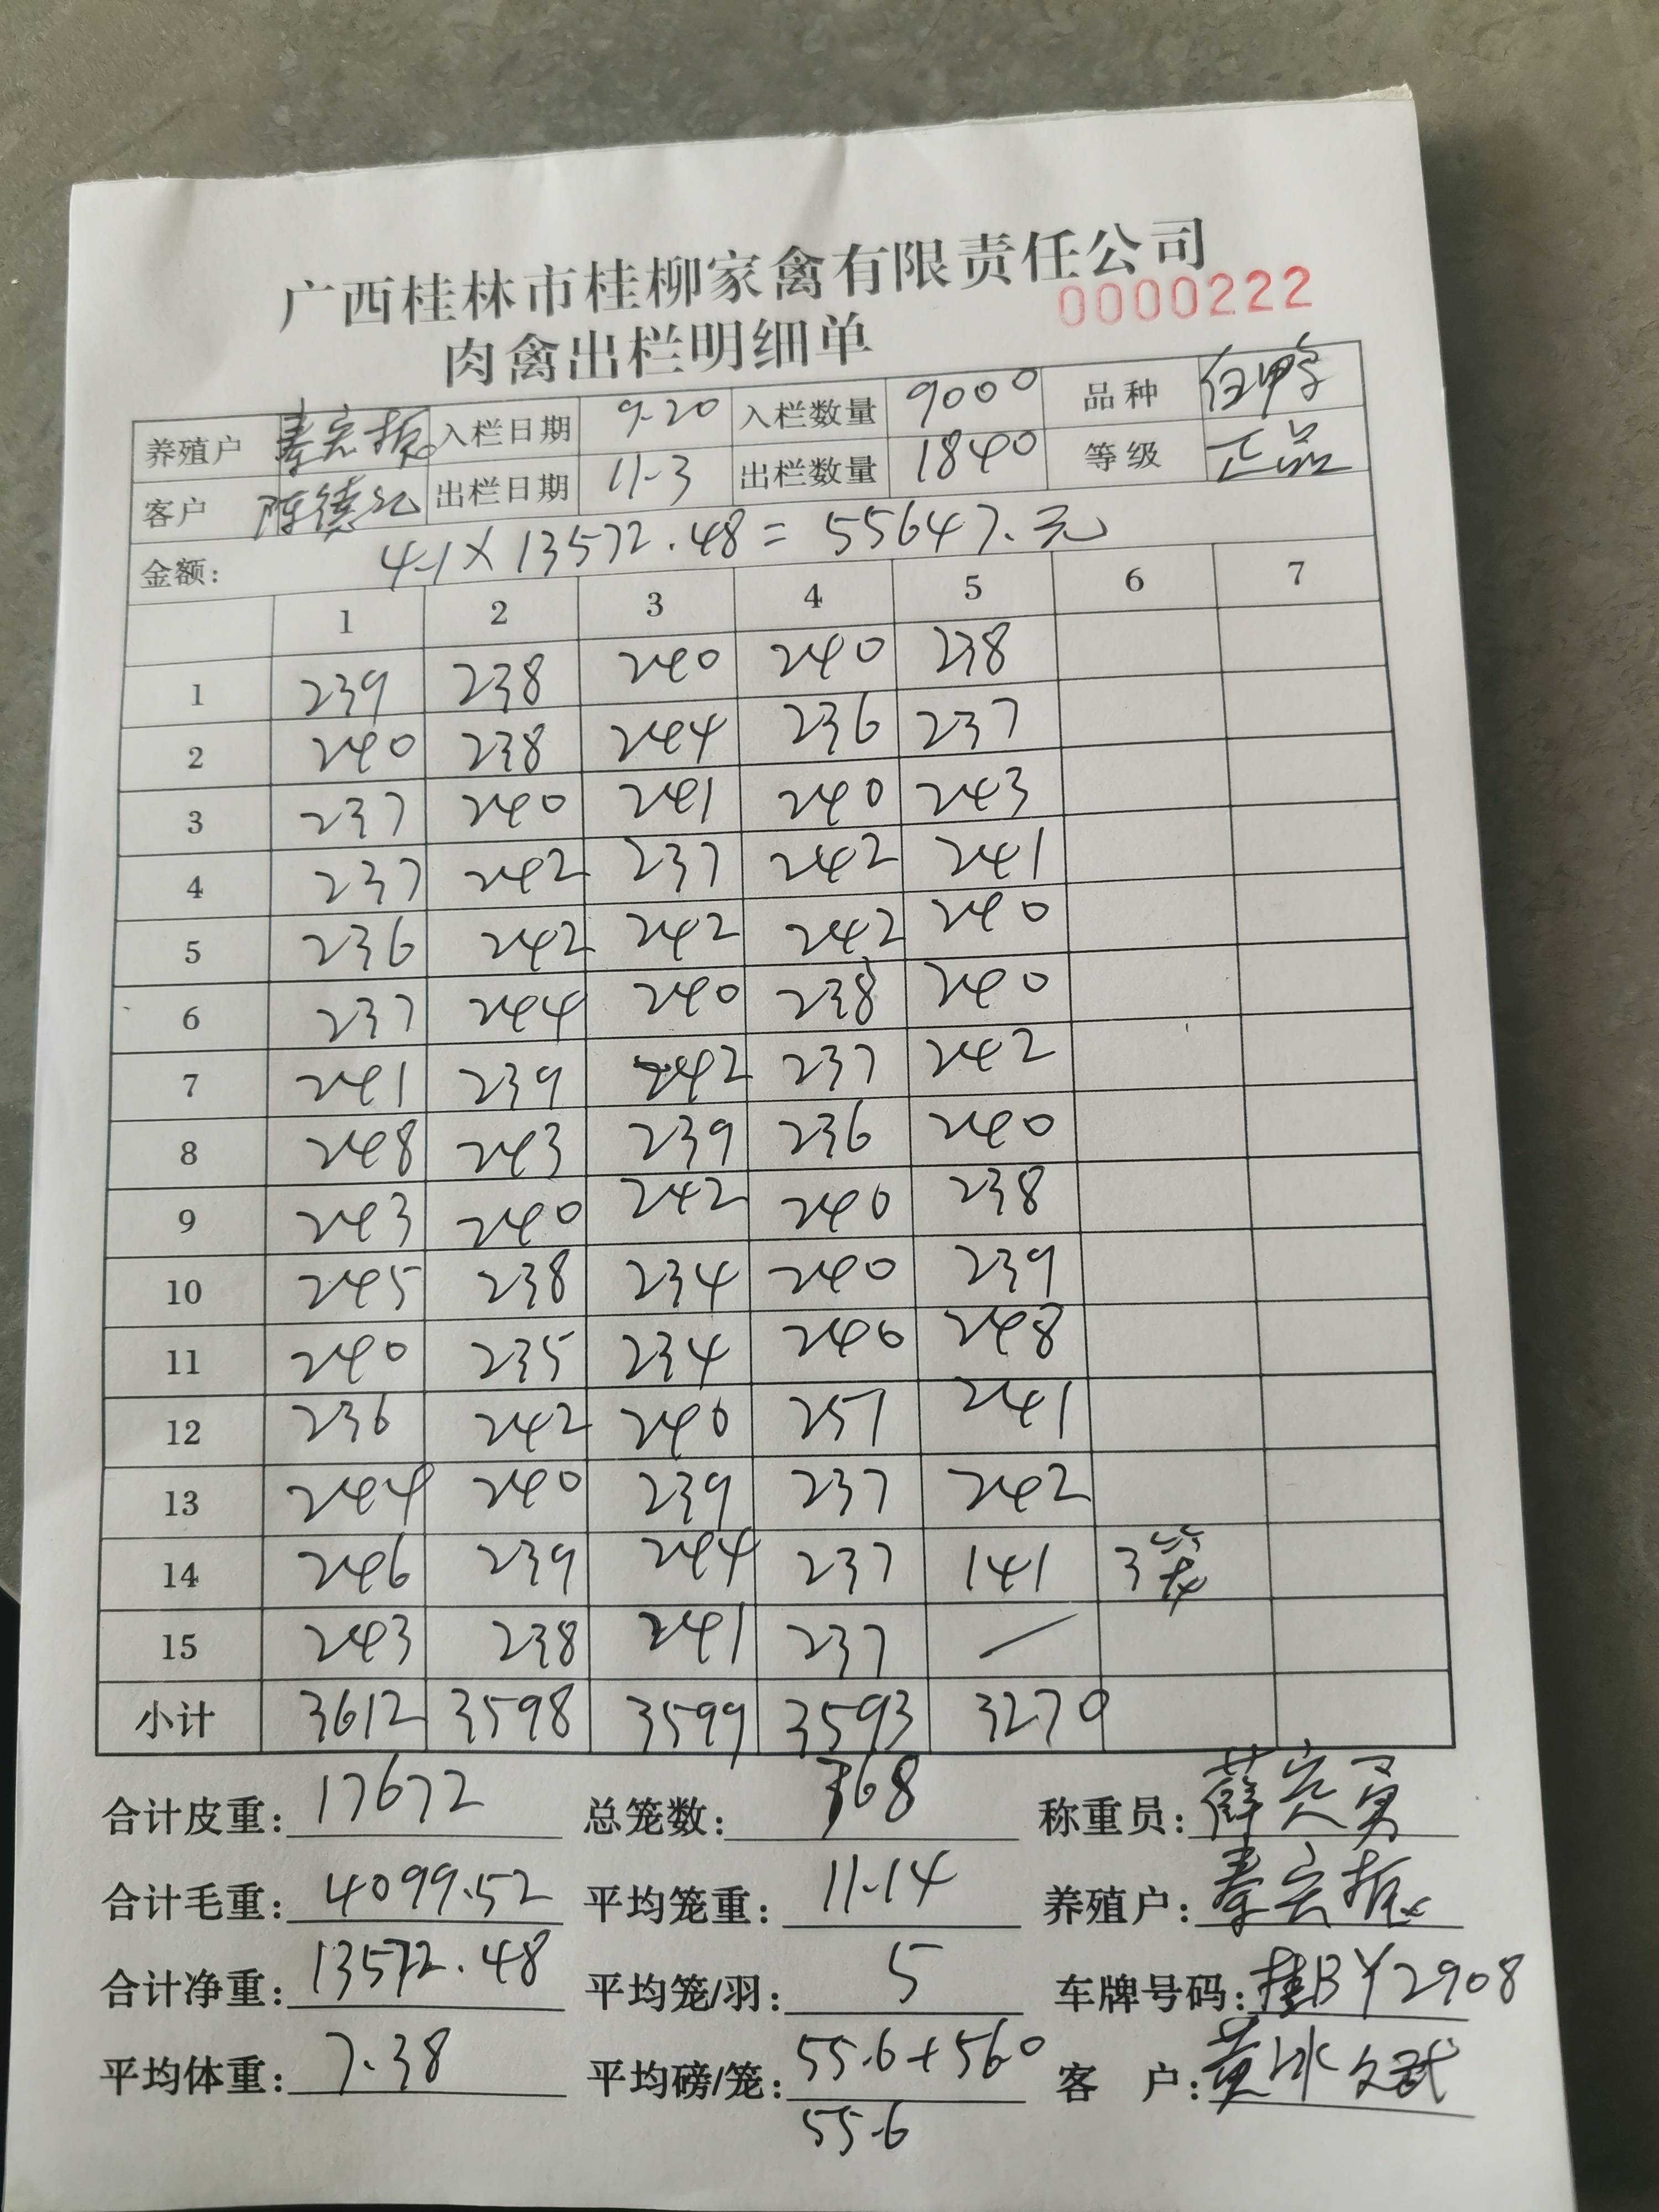 广西桂林市桂柳家禽有限责任公司
0000222
肉禽出栏明细单
养殖户 秦宏振 入栏日期 9.20 入栏数量 9000 品种
客户 陈德 出栏日期 11.3 出栏数量 1840 等级 正品
金额: 4.1×13572.48=55647.元
1 2 3 4 5 6 7
1 239 238 240 240 238
2 240 238 244 236 237
3 237 240 241 240 243
4 237 242 237 242 241
5 236 242 242 242 240
6 237 244 240 238 240
7 241 239 242 237 242
8 248 243 239 236 240
9 243 240 242 240 238
10 245 238 234 240 239
11 240 235 234 240 248
12 236 242 240 251 241
13 244 240 239 237 242
14 246 239 244 237 141 3笼
15 243 238 241 237 —
小计 3612 3598 3599 3593 3270
合计皮重: 17672 总笼数: 368 称重员: 薛
合计毛重: 4099.52 平均笼重: 11.14 养殖户: 秦宏振
合计净重: 13572.48 平均笼/羽: 5 车牌号码: 桂BY2908
平均体重: 7.38 平均磅/笼: 55.6+560 客 户: 黄冰
55.6